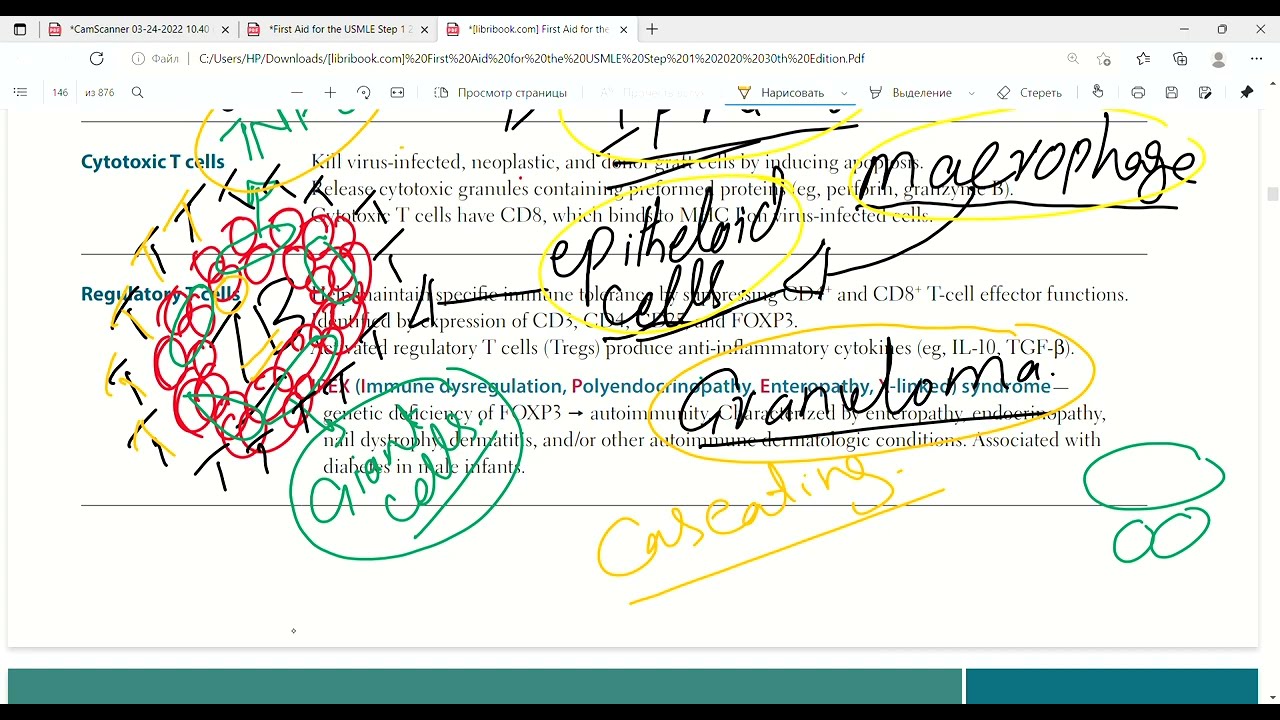 *CamScanner 03-24-2022 10.40
*First Aid for the USMLE Step 1 2
*[libribook.com] First Aid for the
Файл C:/Users/HP/Downloads/[libribook.com]%20First%20Aid%20for%20the%20USMLE%20Step%201%202020%2030th%20Edition.Pdf
146 из 876
Просмотр страницы
Нарисовать
Выделение
Стереть
Cytotoxic T cells
Kill virus-infected, neoplastic, and donor graft cells by inducing apoptosis.
Release cytotoxic granules containing preformed proteins (eg, perforin, granzyme B).
Cytotoxic T cells have CD8, which binds to MHC I on virus-infected cells.
macrophage
epitheloid
cells
Regulatory T cells
Help maintain specific immune tolerance by suppressing CD4+ and CD8+ T-cell effector functions.
Identified by expression of CD3, CD4, CD25, and FOXP3.
Activated regulatory T cells (Tregs) produce anti-inflammatory cytokines (eg, IL-10, TGF-β).
IPEX (Immune dysregulation, Polyendocrinopathy, Enteropathy, X-linked) syndrome—
genetic deficiency of FOXP3 → autoimmunity. Characterized by enteropathy, endocrinopathy,
nail dystrophy, dermatitis, and/or other autoimmune dermatologic conditions. Associated with
diabetes in male infants.
Graneloma.
Giant
cells.
Caseating.
T T T T T T T T T